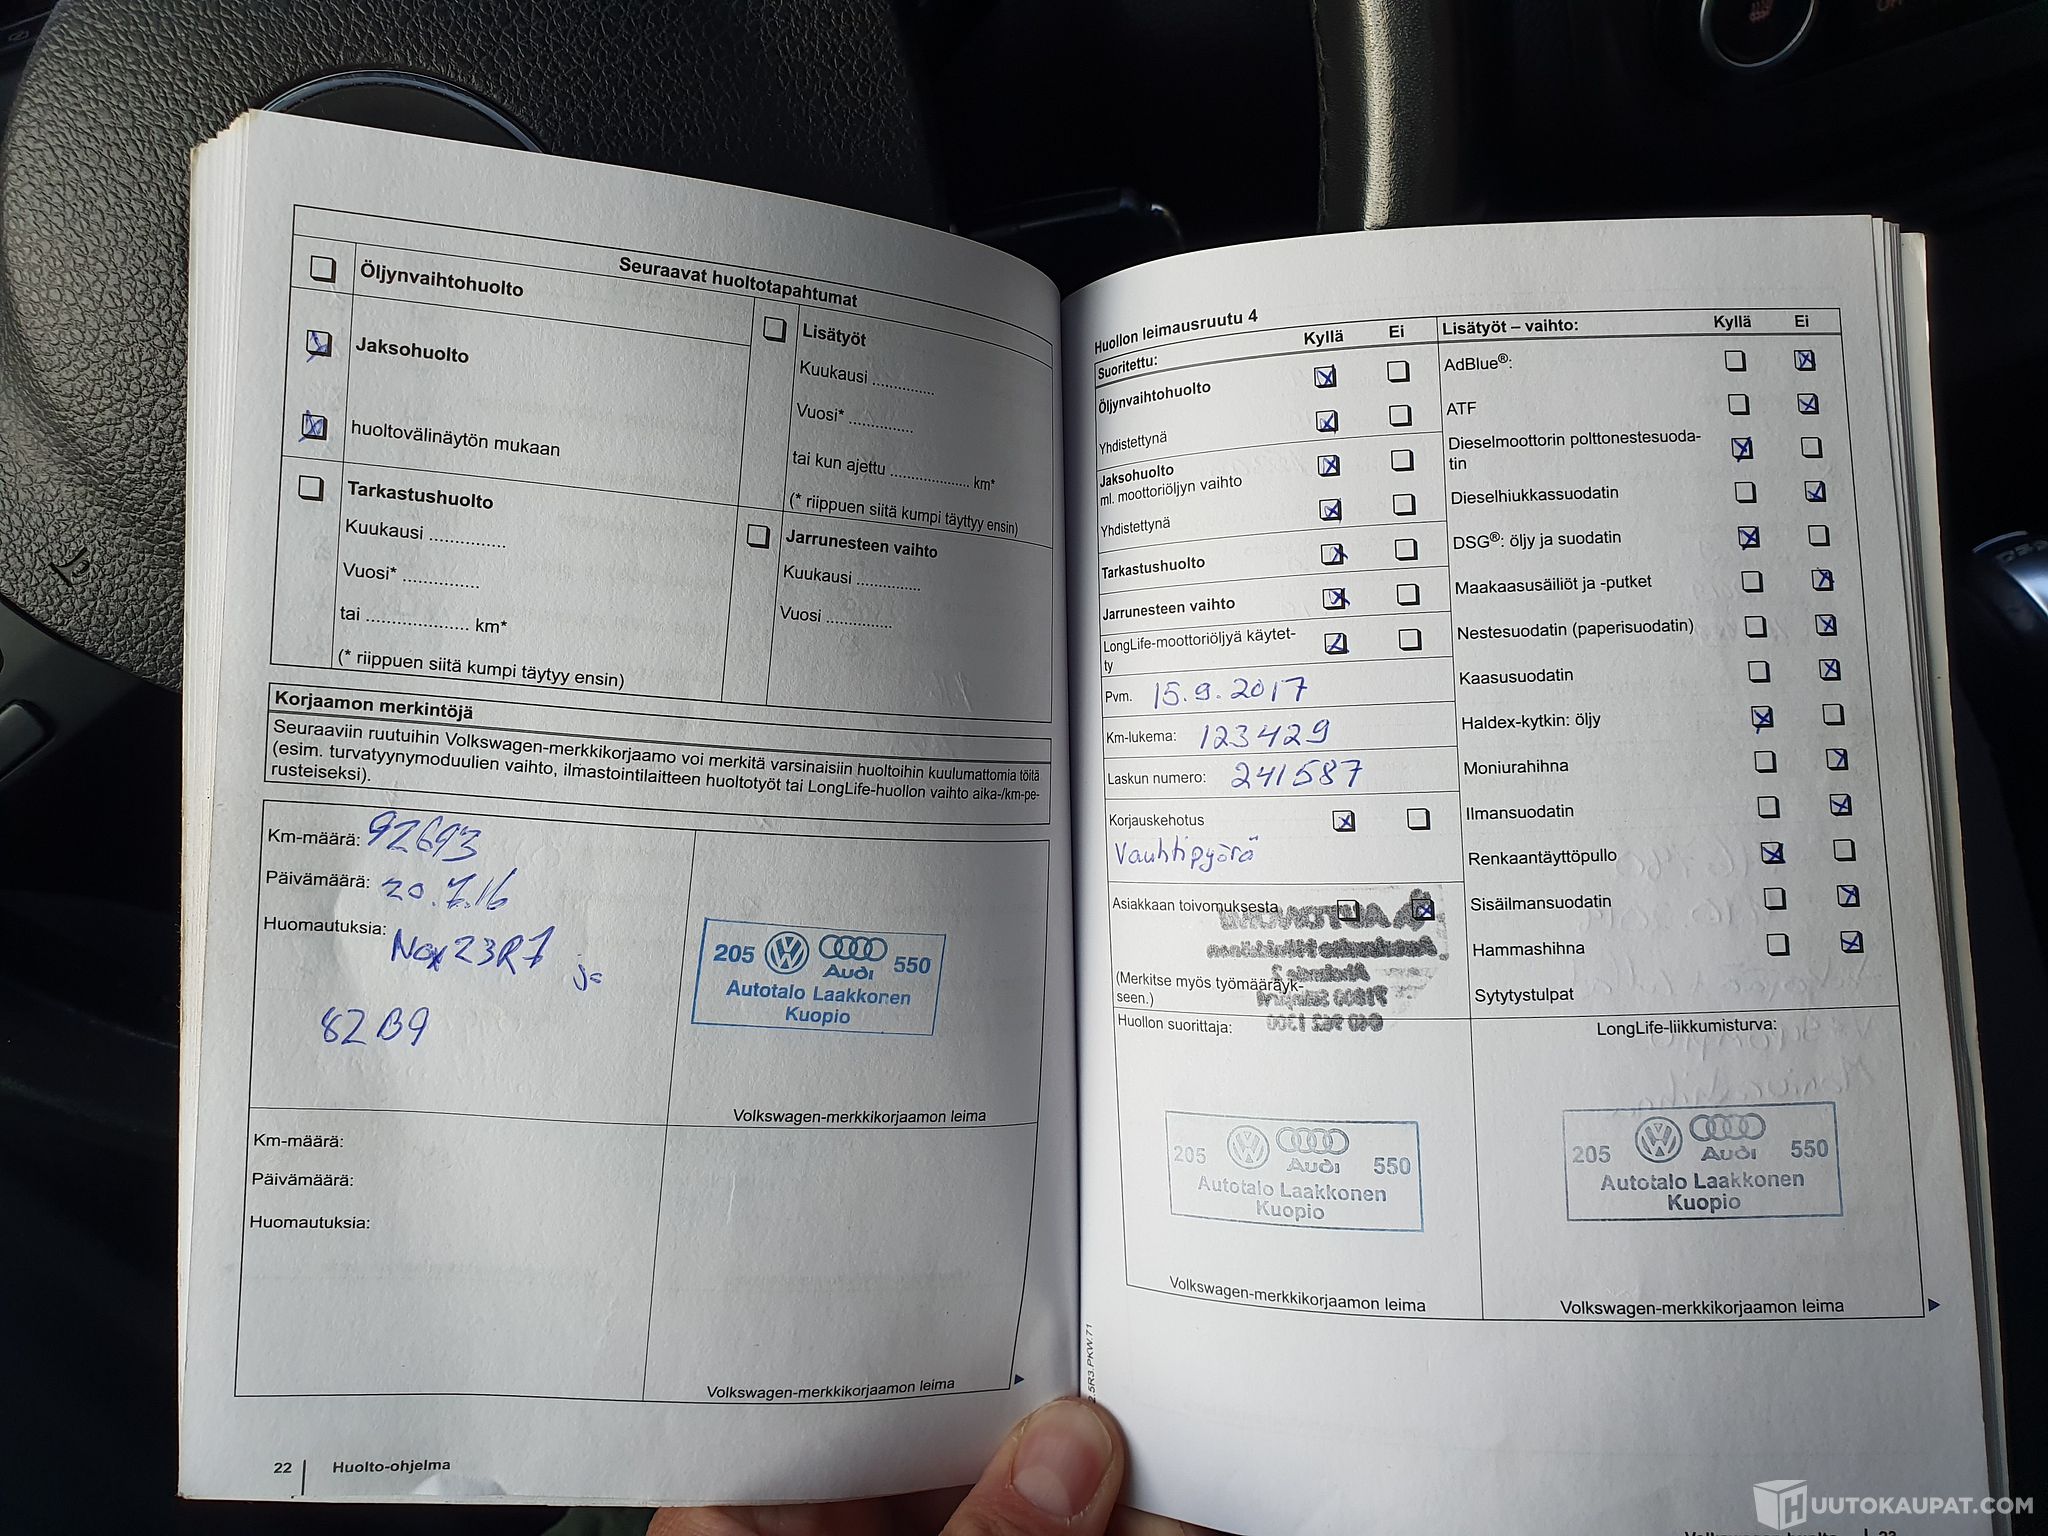 Seuraavat huoltotapahtumat
Öljynvaihtohuolto
Jaksohuolto
huoltovälinäytön mukaan
Tarkastushuolto
Kuukausi ...............
Vuosi* ...............
tai .................... km*
(* riippuen siitä kumpi täytyy ensin)
Lisätyöt
Kuukausi ............
Vuosi* ............
tai kun ajettu .................... km*
(* riippuen siitä kumpi täyttyy ensin)
Jarrunesteen vaihto
Kuukausi .............
Vuosi .............
Korjaamon merkintöjä
Seuraaviin ruutuihin Volkswagen-merkkikorjaamo voi merkitä varsinaisiin huoltoihin kuulumattomia töitä
(esim. turvatyynymoduulien vaihto, ilmastointilaitteen huoltotyöt tai LongLife-huollon vaihto aika-/km-pe-
rusteiseksi).
Km-määrä: 92693
Päivämäärä: 20.7.16
Huomautuksia: Nox 23R7 ja
82B9
205 Audi 550
Autotalo Laakkonen
Kuopio
Volkswagen-merkkikorjaamon leima
Km-määrä:
Päivämäärä:
Huomautuksia:
Volkswagen-merkkikorjaamon leima
22 Huolto-ohjelma
Huollon leimausruutu 4
Suoritettu: Kyllä Ei
Öljynvaihtohuolto
Yhdistettynä
Jaksohuolto
ml. moottoriöljyn vaihto
Yhdistettynä
Tarkastushuolto
Jarrunesteen vaihto
LongLife-moottoriöljyä käytet-
ty
Pvm. 15.9.2017
Km-lukema: 123429
Laskun numero: 241587
Korjauskehotus
Vauhtipyörä
Asiakkaan toivomuksesta
(Merkitse myös työmääräyk-
seen.)
Lisätyöt – vaihto: Kyllä Ei
AdBlue®:
ATF
Dieselmoottorin polttonestesuoda-
tin
Dieselhiukkassuodatin
DSG®: öljy ja suodatin
Maakaasusäiliöt ja -putket
Nestesuodatin (paperisuodatin)
Kaasusuodatin
Haldex-kytkin: öljy
Moniurahihna
Ilmansuodatin
Renkaantäyttöpullo
Sisäilmansuodatin
Hammashihna
Sytytystulpat
Huollon suorittaja:
205 Audi 550
Autotalo Laakkonen
Kuopio
Volkswagen-merkkikorjaamon leima
LongLife-liikkumisturva:
205 Audi 550
Autotalo Laakkonen
Kuopio
Volkswagen-merkkikorjaamon leima
HUUTOKAUPAT.COM